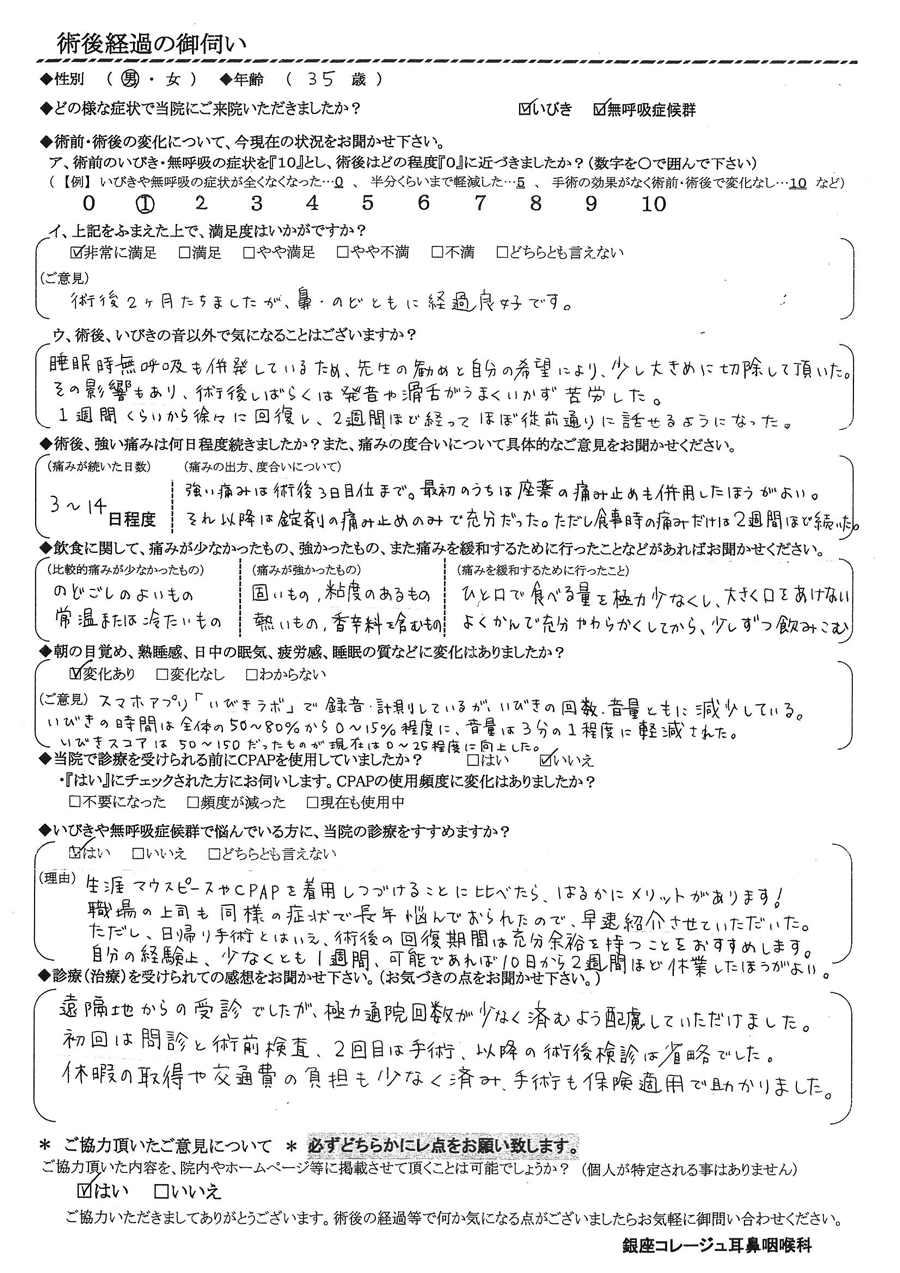 術後経過の御伺い
◆性別 (男・女) ◆年齢 (35歳)
◆どの様な症状で当院にご来院いただきましたか? ☑いびき ☑無呼吸症候群
◆術前・術後の変化について、今現在の状況をお聞かせ下さい。
ア、術前のいびき・無呼吸の症状を『10』とし、術後はどの程度『0』に近づきましたか?(数字を○で囲んで下さい)
(【例】いびきや無呼吸の症状が全くなくなった…0 、 半分くらいまで軽減した…5 、 手術の効果がなく術前・術後で変化なし…10 など)
0 ① 2 3 4 5 6 7 8 9 10
イ、上記をふまえた上で、満足度はいかがですか?
☑非常に満足 □満足 □やや満足 □やや不満 □不満 □どちらとも言えない
(ご意見)
術後2ヶ月たちましたが、鼻・のどともに経過良好です。
ウ、術後、いびきの音以外で気になることはございますか?
睡眠時無呼吸も併発しているため、先生の勧めと自分の希望により、少し大きめに切除して頂いた。
その影響もあり、術後しばらくは発音や滑舌がうまくいかず苦労した。
1週間くらいから徐々に回復し、2週間ほど経ってほぼ従前通りに話せるようになった。
◆術後、強い痛みは何日程度続きましたか?また、痛みの度合いについて具体的なご意見をお聞かせください。
(痛みが続いた日数) (痛みの出方、度合いについて)
3〜14日程度
強い痛みは術後3日目位まで。最初のうちは座薬の痛み止めも併用したほうがよい。
それ以降は錠剤の痛み止めのみで充分だった。ただし食事時の痛みだけは2週間ほど続いた。
◆飲食に関して、痛みが少なかったもの、強かったもの、また痛みを緩和するために行ったことなどがあればお聞かせください。
(比較的痛みが少なかったもの) (痛みが強かったもの) (痛みを緩和するために行ったこと)
のどごしのよいもの 固いもの、粘度のあるもの ひと口で食べる量を極力少なくし、大きく口をあけない
常温または冷たいもの 熱いもの、香辛料を含むもの よくかんで充分やわらかくしてから、少しずつ飲みこむ
◆朝の目覚め、熟睡感、日中の眠気、疲労感、睡眠の質などに変化はありましたか?
☑変化あり □変化なし □わからない
(ご意見) スマホアプリ「いびきラボ」で録音・計測しているが、いびきの回数、音量ともに減少している。
いびきの時間は全体の50〜80%から0〜15%程度に、音量は3分の1程度に軽減された。
いびきスコアは50〜150だったものが現在は0〜25程度に向上した。
◆当院で診療を受けられる前にCPAPを使用していましたか? □はい ☑いいえ
・『はい』にチェックされた方にお伺いします。CPAPの使用頻度に変化はありましたか?
□不要になった □頻度が減った □現在も使用中
◆いびきや無呼吸症候群で悩んでいる方に、当院の診療をすすめますか?
☑はい □いいえ □どちらとも言えない
(理由) 生涯マウスピースやCPAPを着用しつづけることに比べたら、はるかにメリットがあります!
職場の上司も同様の症状で長年悩んでおられたので、早速紹介させていただいた。
ただし、日帰り手術とはいえ、術後の回復期間は充分余裕を持つことをおすすめします。
自分の経験上、少なくとも1週間、可能であれば10日から2週間ほど休業したほうがよい。
◆診療(治療)を受けられての感想をお聞かせ下さい。(お気づきの点をお聞かせ下さい。)
遠隔地からの受診でしたが、極力通院回数が少なく済むよう配慮していただけました。
初回は問診と術前検査、2回目は手術、以降の術後検診は省略でした。
休暇の取得や交通費の負担も少なく済み、手術も保険適用で助かりました。
* ご協力頂いたご意見について * 必ずどちらかにレ点をお願い致します。
ご協力頂いた内容を、院内やホームページ等に掲載させて頂くことは可能でしょうか? (個人が特定される事はありません)
☑はい □いいえ
ご協力いただきましてありがとうございます。術後の経過等で何か気になる点がございましたらお気軽に御問い合わせください。
銀座コレージュ耳鼻咽喉科